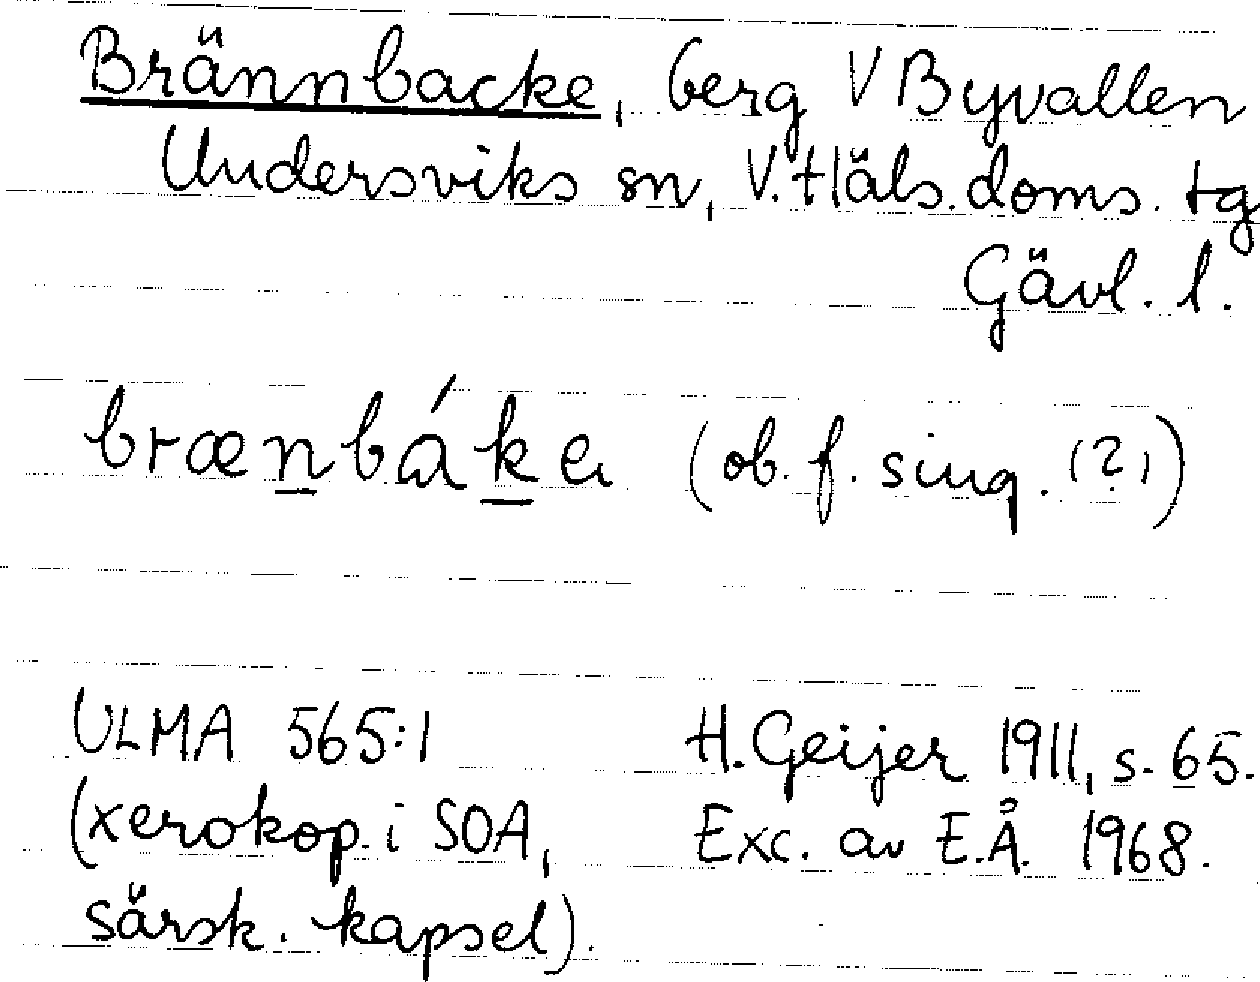 Brännbacke, berg V Byvallen
Undersviks sn, V. Häls. doms. tg
Gävl. l.
brænbákɐ (ob. f. sing. (?))
ULMA 565:1 H. Geijer 1911, s. 65.
(xerokop. i SOA, Exc. av E.Å. 1968.
särsk. kapsel).